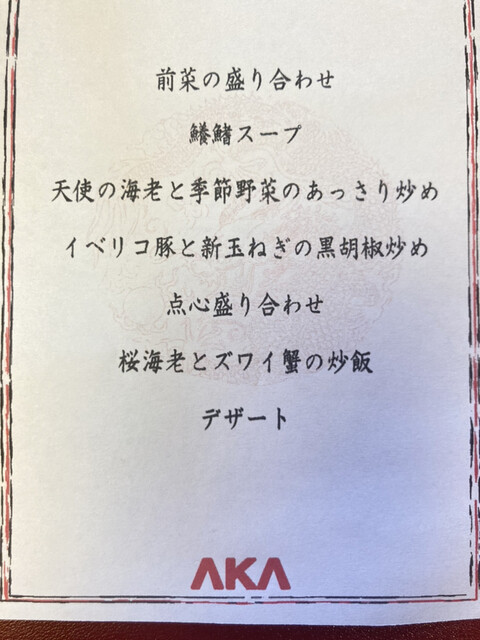 前菜の盛り合わせ
鱶鰭スープ
天使の海老と季節野菜のあっさり炒め
イベリコ豚と新玉ねぎの黒胡椒炒め
点心盛り合わせ
桜海老とズワイ蟹の炒飯
デザート
AKA